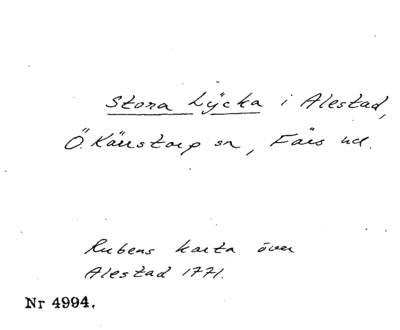 Stora Lÿcka i Alestad,
Ö. Kärrstorp sn, Färs hd.
Rubens karta över
Alestad 1771.
Nr 4994.